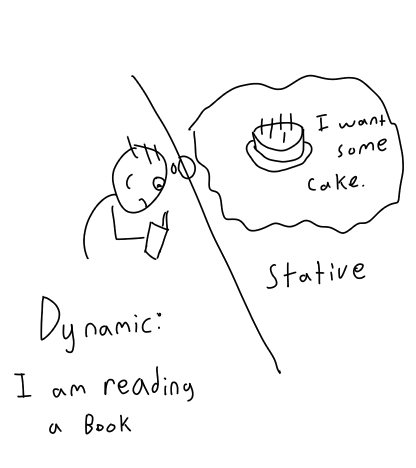 I want
some
cake.
Stative
Dynamic:
I am reading
a Book